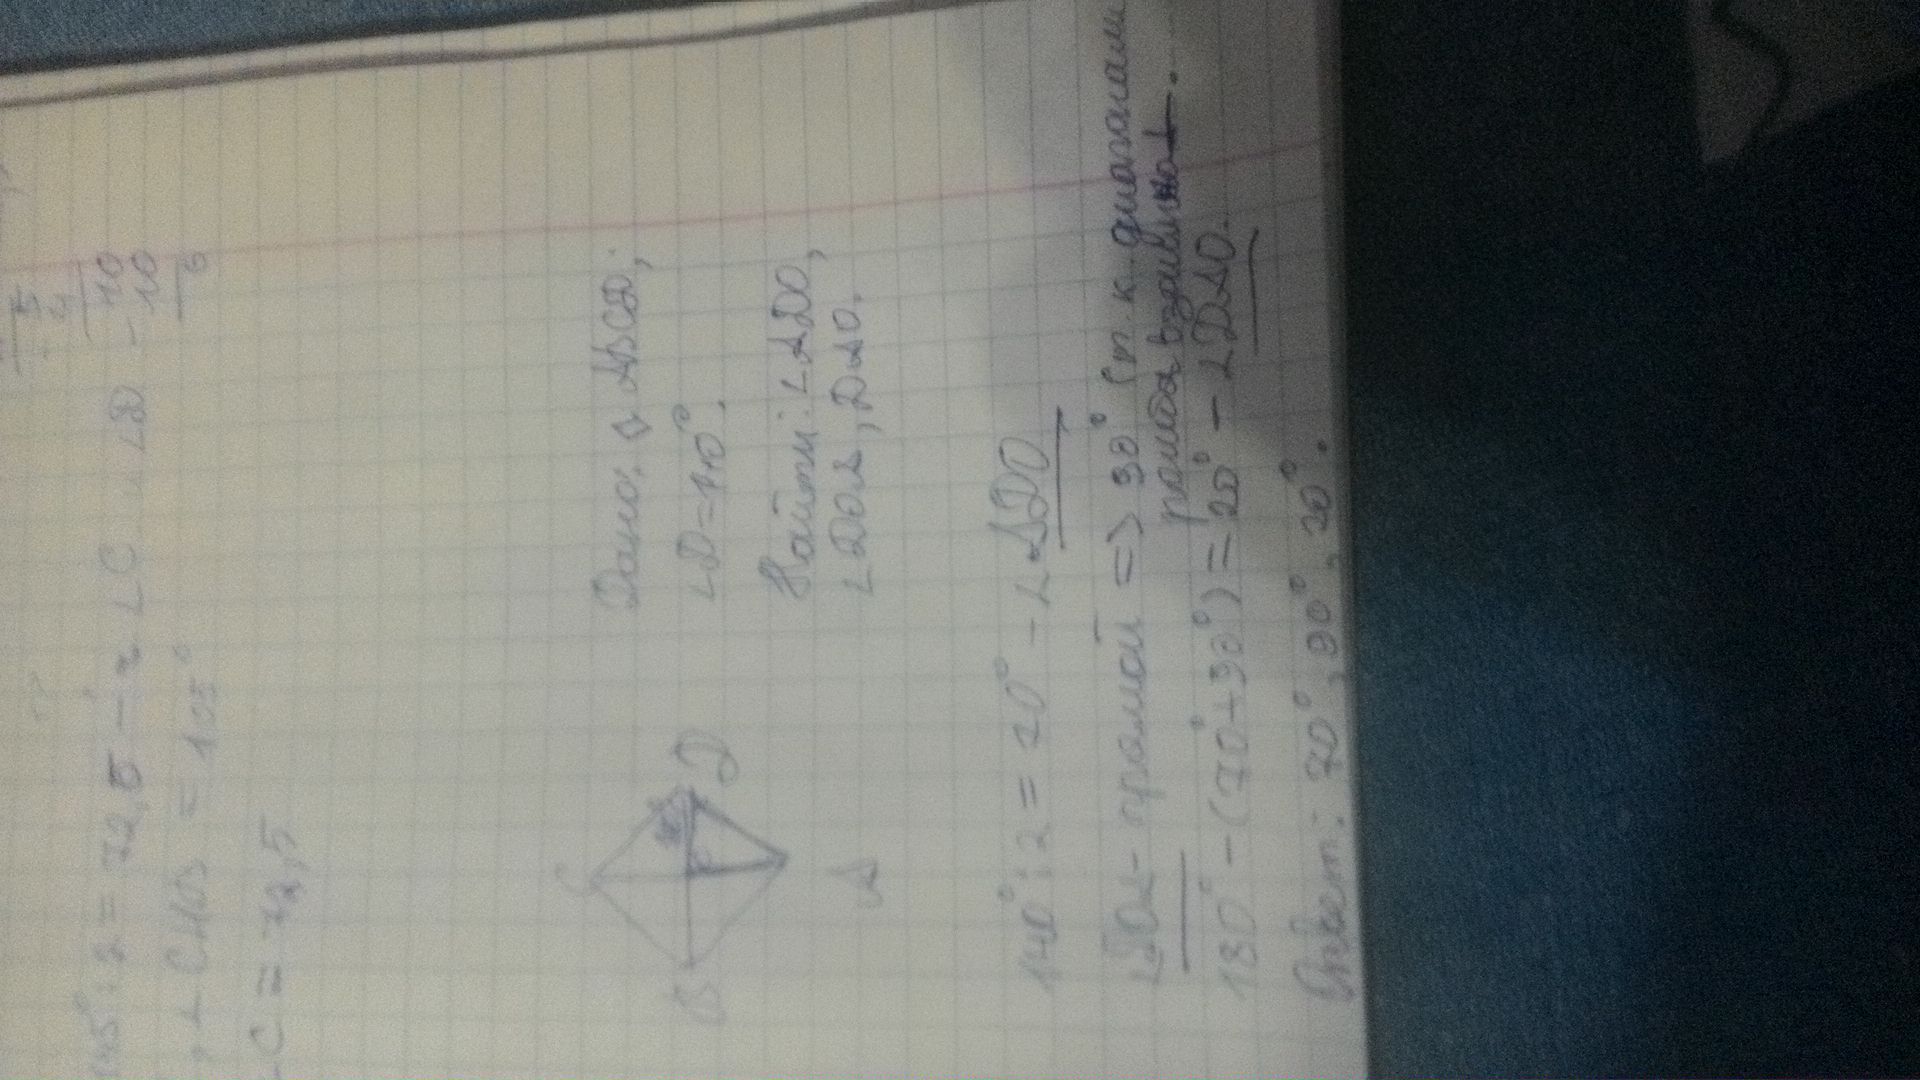 145° : 2 = 72,5 - ∠C и ∠B
= 105°
C = 72,5
5
4
- 10
10
0
Дано: ◊ ABCD;
∠D = 140°.
Найти: ∠ADO,
∠DOA, DAO.
C
B
D
A
140° : 2 = 70° - ∠ADO
∠DOA - прямой => 90° (т. к. диагонали
ромба взаимно ⊥.
180° - (70° + 90°) = 20° - ∠DAO.
Ответ: 70°, 90°, 20°.